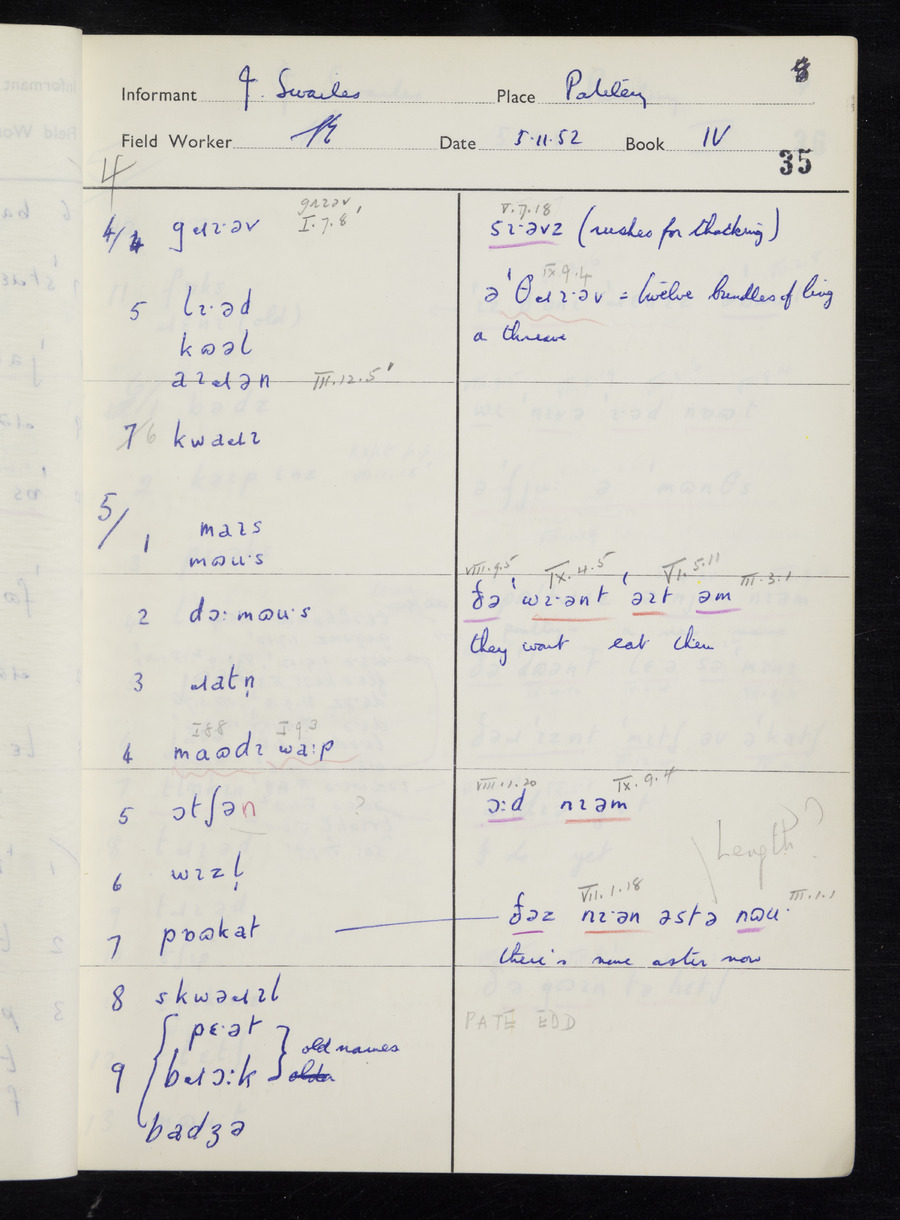 8
Informant J. Swailes Place Pateley
Field Worker Date 5.11.52 Book IV
35
4
4/4 gɹɪ·əv gɹɪəv, I.7.8
5 lɪ·əd
kɷəl
aɪɹən III.12.5
7/6 kwaɹɪ
5/1 maɪs
mɷu·s
2 dɔ:mɷu·s
3 ɹatn̩
4 maɷdɪ wa:p
I 8 8 I 9 3
5 ɔtʃən ?
6 wɪzl̩
7 pɒɷkat
8 skwəɹɪl
9 pɛ·ət
bɹɔ:k
old names
badʒə
V.7.18
sɪ·əvz (rushes for thacking)
IX 9.4
ə ˈθɹɪ·əv = twelve bundles of ling
a threave
VIII.9.5 IX.4.5 VI.5.11 III.3.1
ðə ˈwɪ·ənt ˈəɪt əm
they wont eat them
VIII.1.20 IX.9.4
ɔ:d nɪəm
Length?
VII.1.18 III.1.1
ðəz nɪ·ən əstə nɷu·
there's none aster now
PATE EDD